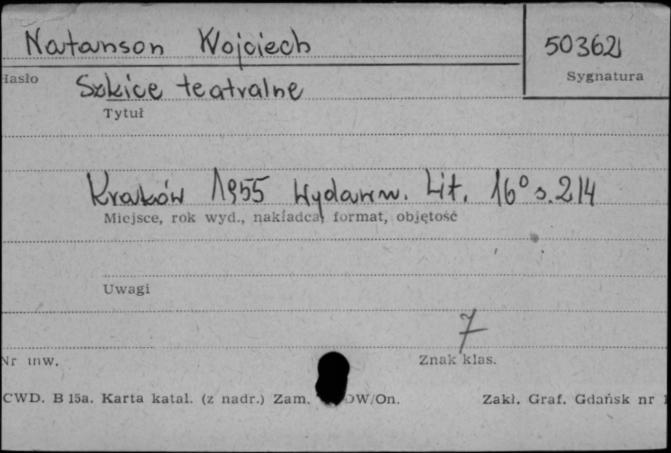 Natanson Wojciech
50362
Hasło
Sygnatura
Szkice teatralne
Tytuł
Kraków 1955 Wydawn. Lit. 16° s. 214
Miejsce, rok wyd., nakładca, format, objętość
Uwagi
7
Nr inw.
Znak klas.
CWD. B 15a. Karta katal. (z nadr.) Zam. DW/On.
Zakł. Graf. Gdańsk nr 1